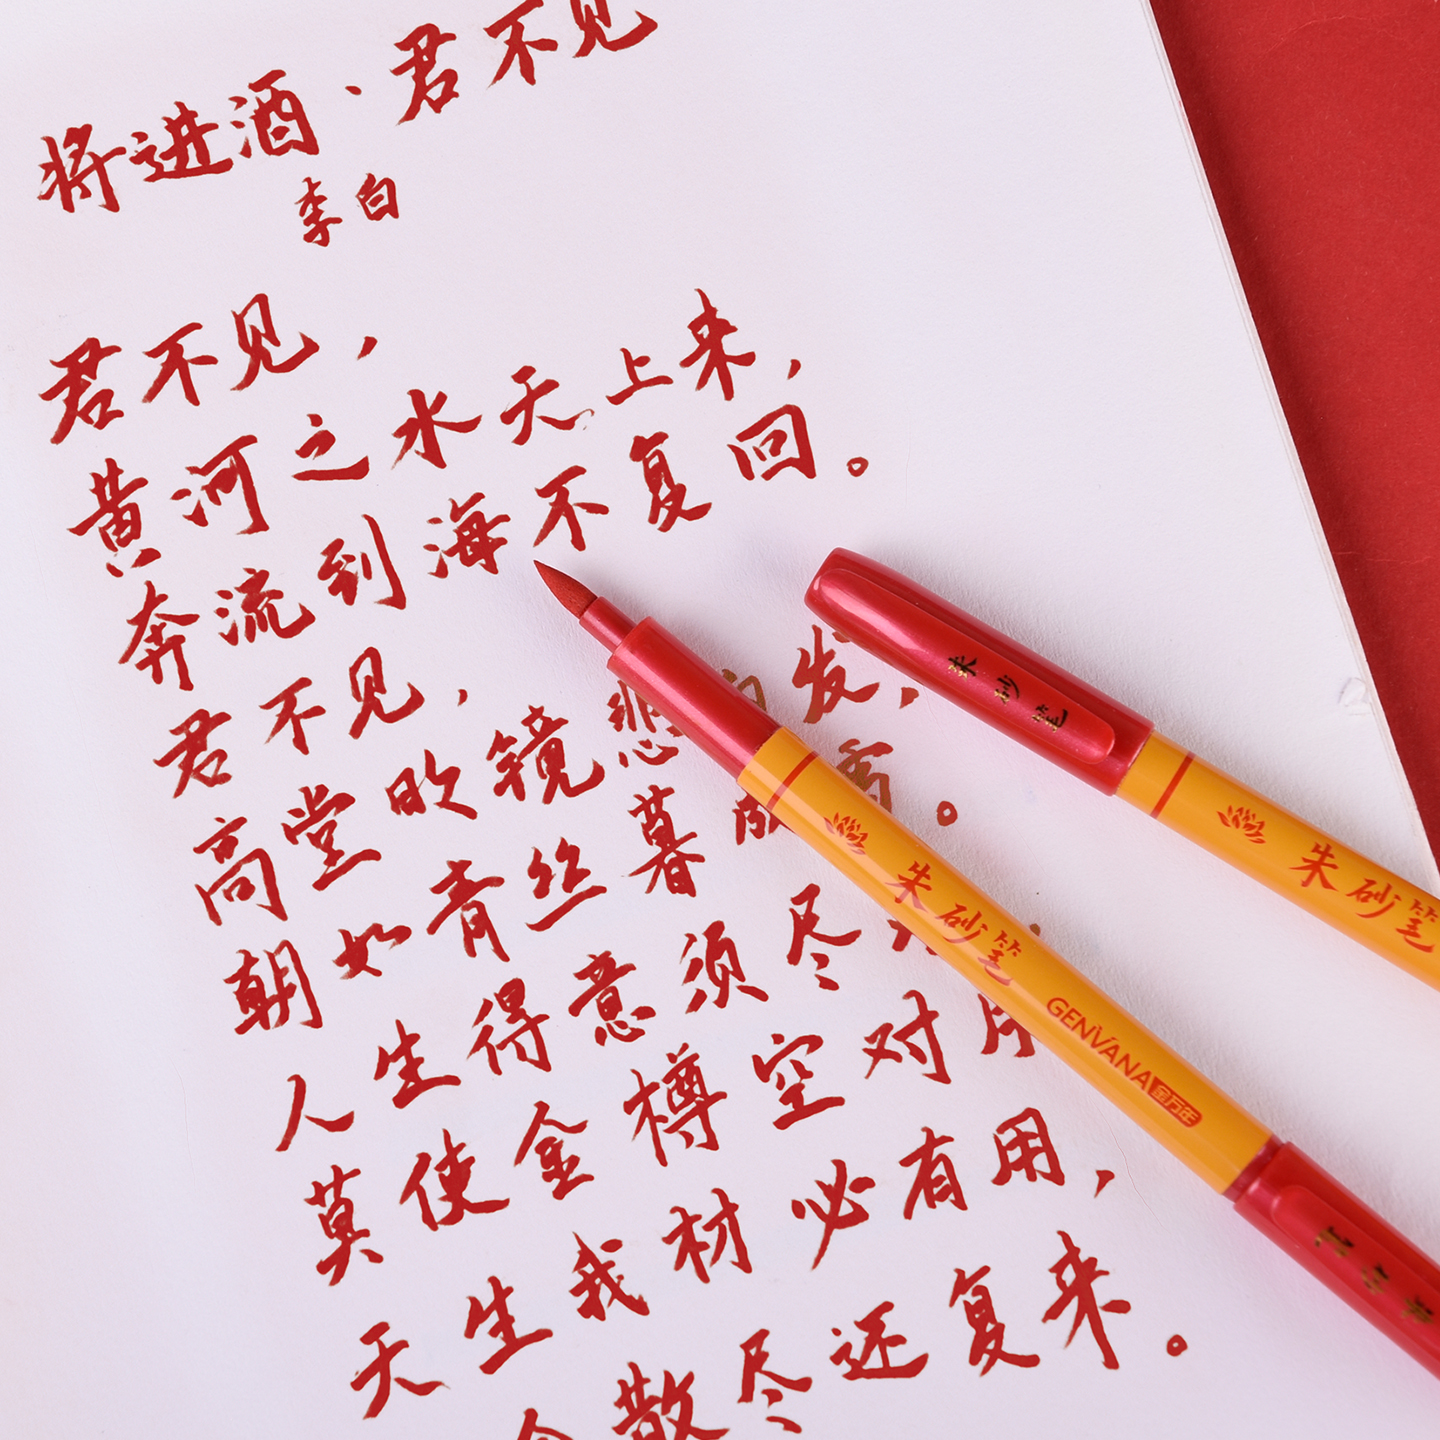 将进酒·君不见
李白
君不见，
黄河之水天上来，
奔流到海不复回。
君不见，
高堂明镜悲白发，
朝如青丝暮成雪。
人生得意须尽
莫使金樽空对月
天生我材必有用，
金散尽还复来。
朱砂笔
朱砂笔
GENVANA 金万年
朱砂笔